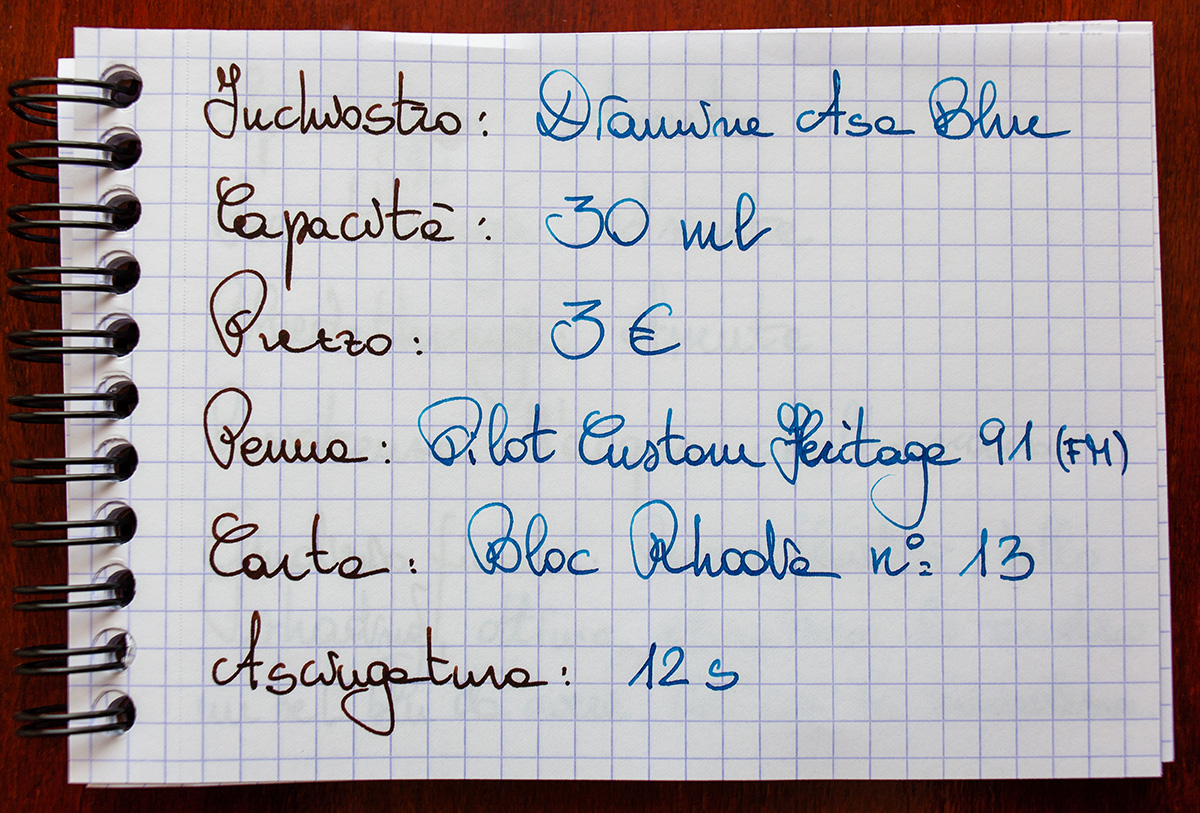 Inchiostro: Diamine Asa Blue
Capacità: 30 ml
Prezzo: 3 €
Penna: Pilot Custom Heritage 91 (FM)
Carta: Bloc Rhodia n°= 13
Asciugatura: 12 s